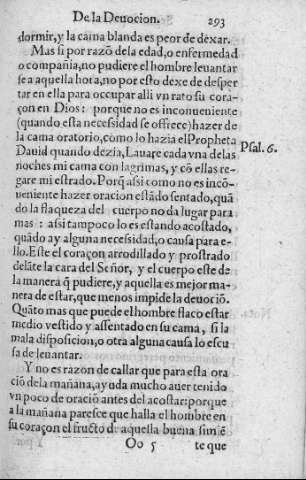 De la Deuocion. 293
dormir, y la cama blanda es peor de dexar.
Mas si por razõ de la edad, o enfermedad
o compañia, no pudiere el hombre leuantar
se a aquella hora, no por esto dexe de desper
tar en ella para occupar alli vn rato su cora-
çon en Dios: porque no es inconueniente
(quando esta necessidad se offrece) hazer de
la cama oratorio, como lo hazia el Propheta
Dauid quando dezia, Lauare cada vna de las
Psal. 6.
noches mi cama con lagrimas, y cõ ellas re-
gare mi estrado. Porq̃ assi como no es incõ-
ueniente hazer oracion estãdo sentado, quã
do la flaqueza del cuerpo no da lugar para
mas: assi tampoco lo es estando acostado,
quãdo ay alguna necessidad, o causa para e-
llo. Este el coraçon arrodillado y prostrado
delãte la cara del Señor, y el cuerpo este de
la manera q̃ pudiere, y aquella es mejor ma-
nera de estar, que menos impide la deuociõ.
Quãto mas que puede el hombre flaco estar
medio vestido y assentado en su cama, si la
mala disposicion, o otra alguna causa lo escu
sa de leuantar.
Y no es razon de callar que para esta ora
ciõ dela mañana, ayuda mucho auer tenido
vn poco de oraciõ antes del acostar: porque
a la mañana paresce que halla el hombre en
su coraçon el fructo d̃ aquella buena simiẽ
Oo 5 te que